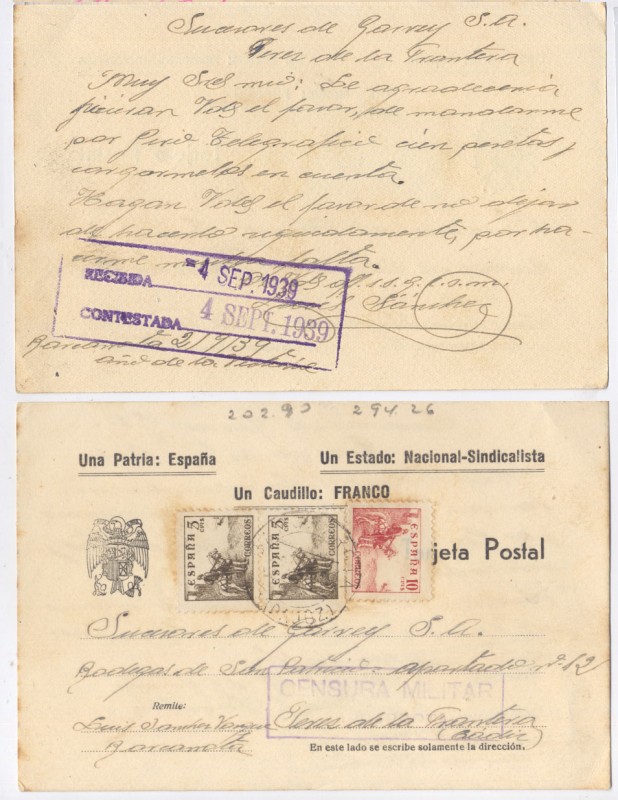 Sucesores de Garvey S.A.
Jerez de la Frontera
Muy Sres mios: Le agradeceria
hicieran Vds el favor, de mandarme
por Giro Telegrafico cien pesetas,
cargarmelas en cuenta.
Hagan Vds el favor de no dejar
de hacerlo seguidamente, por ha-
cerme mucha falta.
s.s.q.e.s.m.
Luis Sánchez
RECIBIDA -4 SEP 1939
CONTESTADA 4 SEPT. 1939
Barcarrota 2/9/39
año de la Victoria
202.90 294.26
Una Patria: España
Un Estado: Nacional-Sindicalista
Un Caudillo: FRANCO
ESPAÑA 5 CTS. CORREOS
ESPAÑA 5 CTS. CORREOS
ESPAÑA 10 CTS. CORREOS
jeta Postal
Sucesores de Garvey S.A.
Bodegas de San Patricio - apartado nº 12
CENSURA MILITAR
Remite:
Luis Sanchez Vargas
Jerez de la Frontera
Barcarrota
(Cadiz)
En este lado se escribe solamente la dirección.